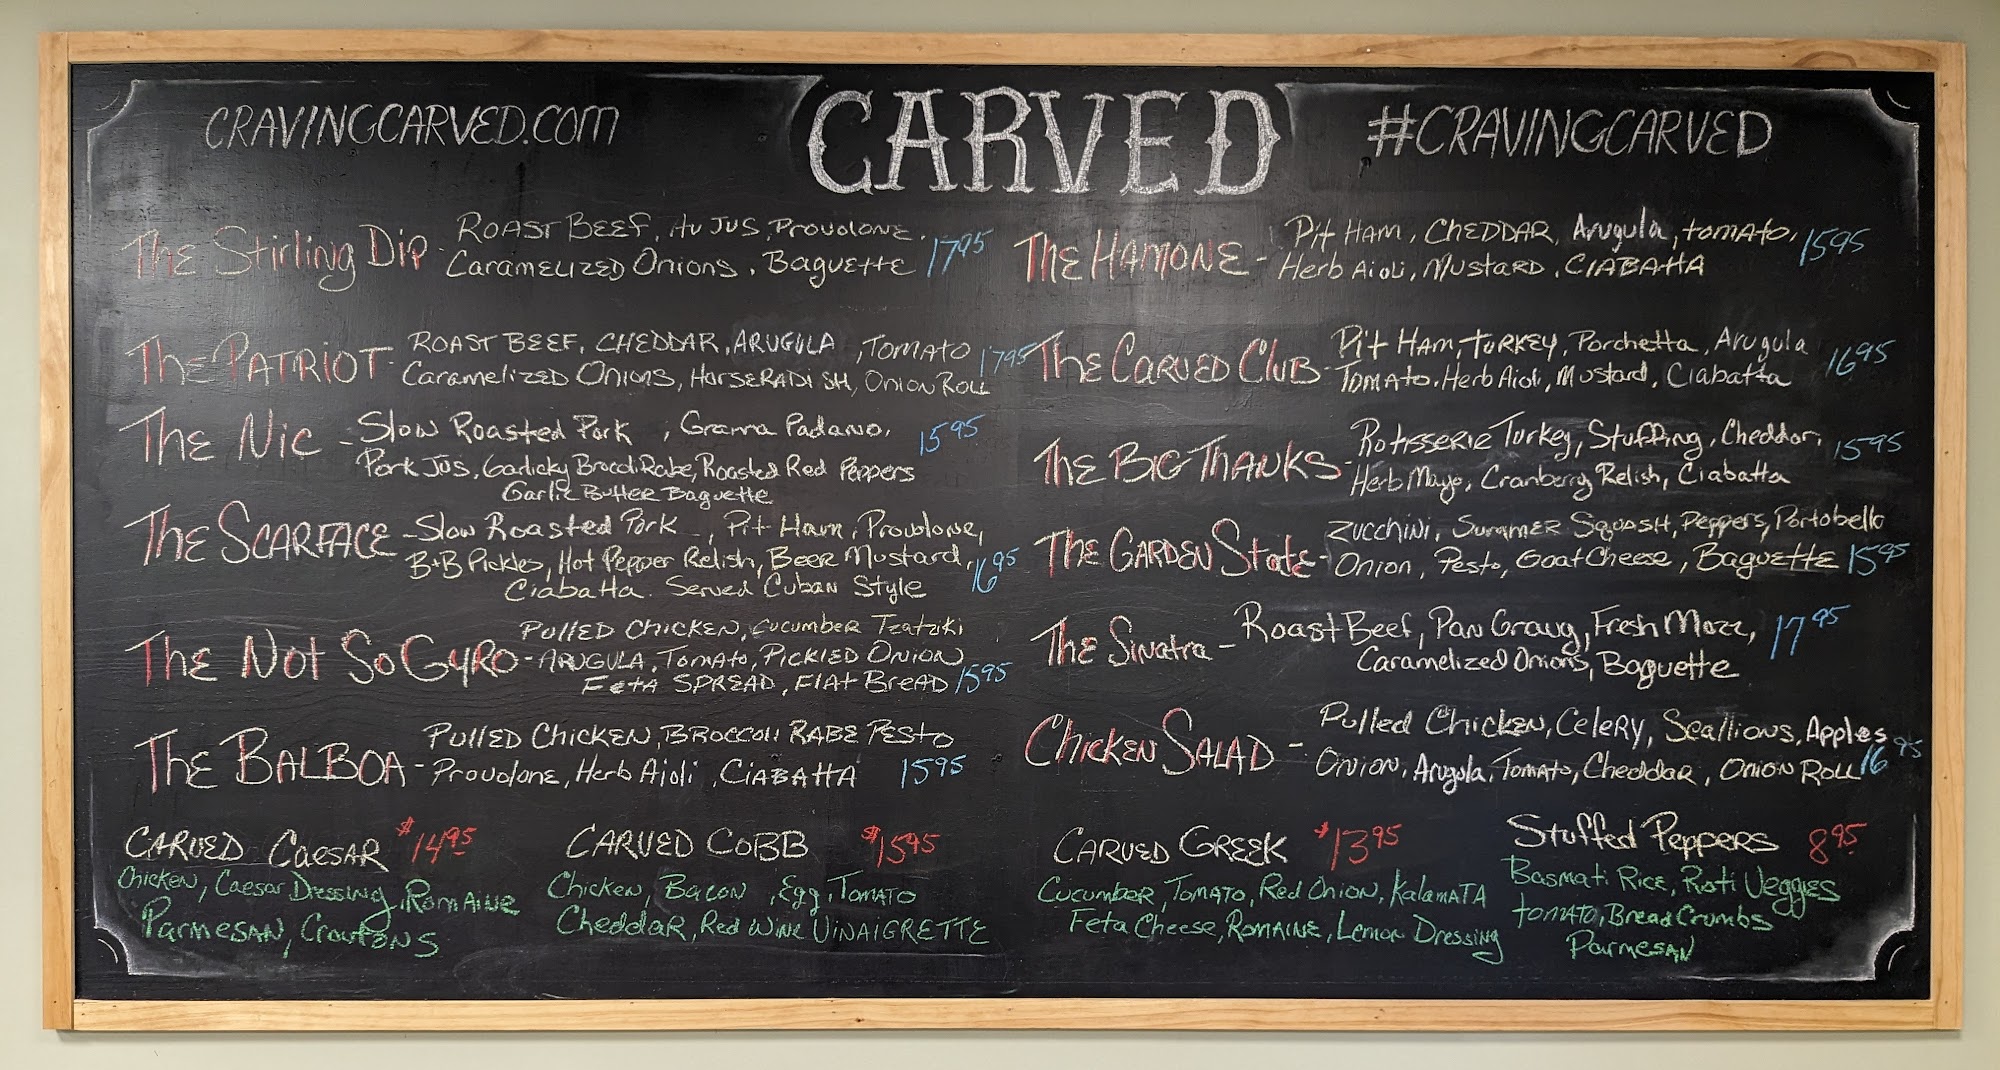 CRAVINGCARVED.COM
CARVED
#CRAVINGCARVED
The Stirling Dip - Roast Beef, Au Jus, Provolone,
Caramelized Onions, Baguette 17 95
The Patriot - Roast Beef, Cheddar, Arugula, Tomato
Caramelized Onions, Horseradish, Onion Roll 17 95
The Nic - Slow Roasted Pork, Grana Padano,
Pork Jus, Garlicky Brocoli Rabe, Roasted Red Peppers 15 95
Garlic Butter Baguette
The Scarface - Slow Roasted Pork, Pit Ham, Provolone,
B+B Pickles, Hot Pepper Relish, Beer Mustard,
Ciabatta. Served Cuban Style 16 95
The Not So Gyro - Pulled Chicken, Cucumber Tzatziki
Arugula, Tomato, Pickled Onion
Feta Spread, Flat Bread 15 95
The Balboa - Pulled Chicken, Broccoli Rabe Pesto
Provolone, Herb Aioli, Ciabatta 15 95
The Hamone - Pit Ham, Cheddar, Arugula, Tomato,
Herb Aioli, Mustard, Ciabatta 15 95
The Carved Club - Pit Ham, Turkey, Porchetta, Arugula
Tomato, Herb Aioli, Mustard, Ciabatta 16 95
The Big Thanks - Rotisserie Turkey, Stuffing, Cheddar,
Herb Mayo, Cranberry Relish, Ciabatta 15 95
The Garden State - Zucchini, Summer Squash, Peppers, Portobello
Onion, Pesto, Goat Cheese, Baguette 15 95
The Sinatra - Roast Beef, Pan Gravy, Fresh Mozz,
Caramelized Onions, Baguette 17 95
Chicken Salad - Pulled Chicken, Celery, Scallions, Apples
Onion, Arugula, Tomato, Cheddar, Onion Roll 16 95
Carved Caesar $14 95
Chicken, Caesar Dressing, Romaine
Parmesan, Croutons
Carved Cobb $15 95
Chicken, Bacon, Egg, Tomato
Cheddar, Red Wine Vinaigrette
Carved Greek $13 95
Cucumber, Tomato, Red Onion, Kalamata
Feta Cheese, Romaine, Lemon Dressing
Stuffed Peppers 8 95
Basmati Rice, Roti Veggies
Tomato, Bread Crumbs
Parmesan